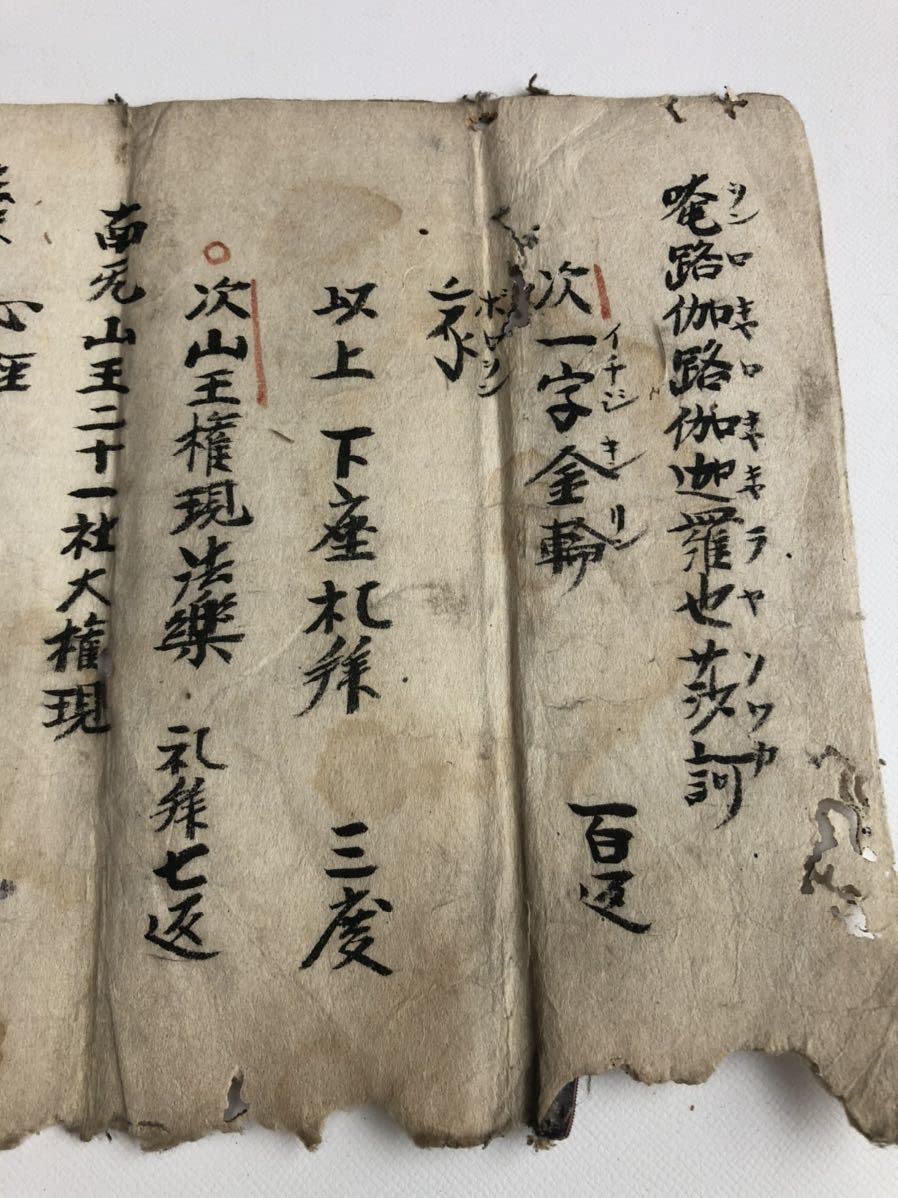 唵路伽路伽迦羅也莎訶
ヲンロキャロキャキャラヤソワカ
次一字金輪 百返
イチジキンリン
ボロン
以上 下座礼拜 三度
次山王権現法樂 礼拜七返
南无山王二十一社大権現
心経